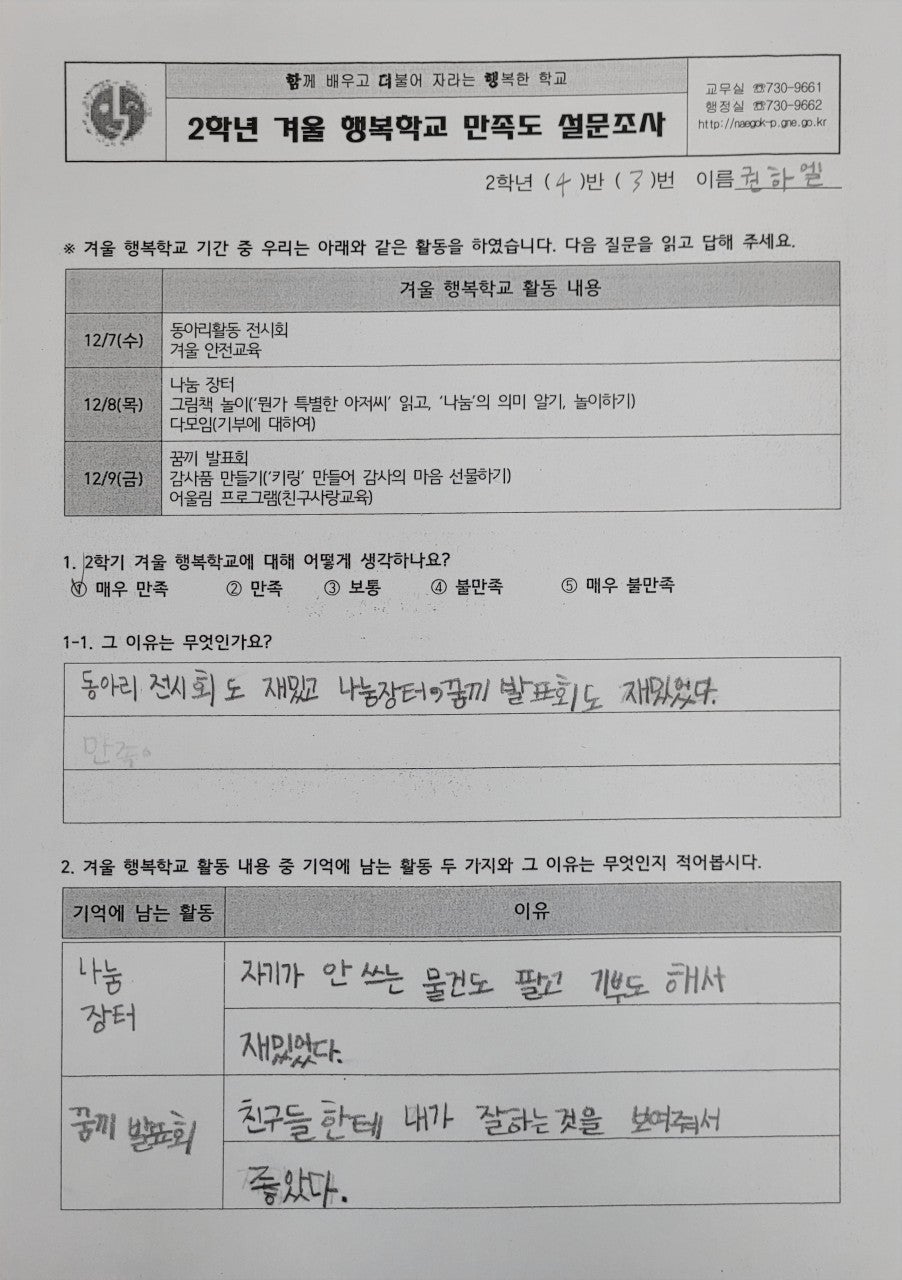 함께 배우고 더불어 자라는 행복한 학교
2학년 겨울 행복학교 만족도 설문조사
교무실 ☏730-9661
행정실 ☏730-9662
http://naegok-p.gne.go.kr
2학년 ( 4 )반 ( 3 )번 이름 권하엘
※ 겨울 행복학교 기간 중 우리는 아래와 같은 활동을 하였습니다. 다음 질문을 읽고 답해 주세요.
겨울 행복학교 활동 내용
12/7(수)
동아리활동 전시회
겨울 안전교육
12/8(목)
나눔 장터
그림책 놀이('뭔가 특별한 아저씨' 읽고, '나눔'의 의미 알기, 놀이하기)
다모임(기부에 대하여)
12/9(금)
꿈끼 발표회
감사품 만들기('키링' 만들어 감사의 마음 선물하기)
어울림 프로그램(친구사랑교육)
1. 2학기 겨울 행복학교에 대해 어떻게 생각하나요?
① 매우 만족 ② 만족 ③ 보통 ④ 불만족 ⑤ 매우 불만족
1-1. 그 이유는 무엇인가요?
동아리 전시회도 재밌고 나눔장터,꿈끼 발표회도 재밌었다.
만족
2. 겨울 행복학교 활동 내용 중 기억에 남는 활동 두 가지와 그 이유는 무엇인지 적어봅시다.
기억에 남는 활동 이유
나눔
장터
자기가 안 쓰는 물건도 팔고 기부도 해서
재밌었다.
꿈끼 발표회
친구들한테 내가 잘하는것을 보여줘서
좋았다.